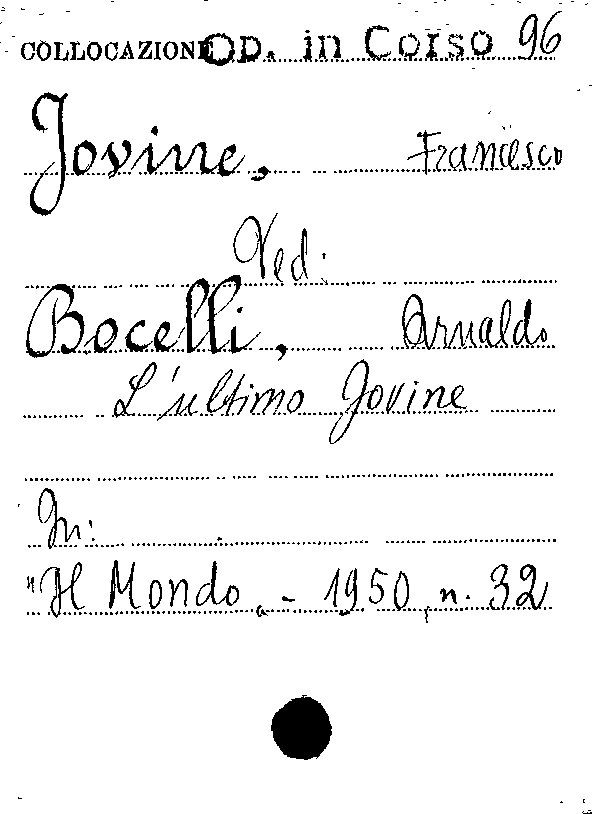 COLLOCAZIONE Op. in Corso 96
Jovine, Francesco
Ved:
Bocelli, Arnaldo
L'ultimo Jovine
In:
"Il Mondo" - 1950, n. 32